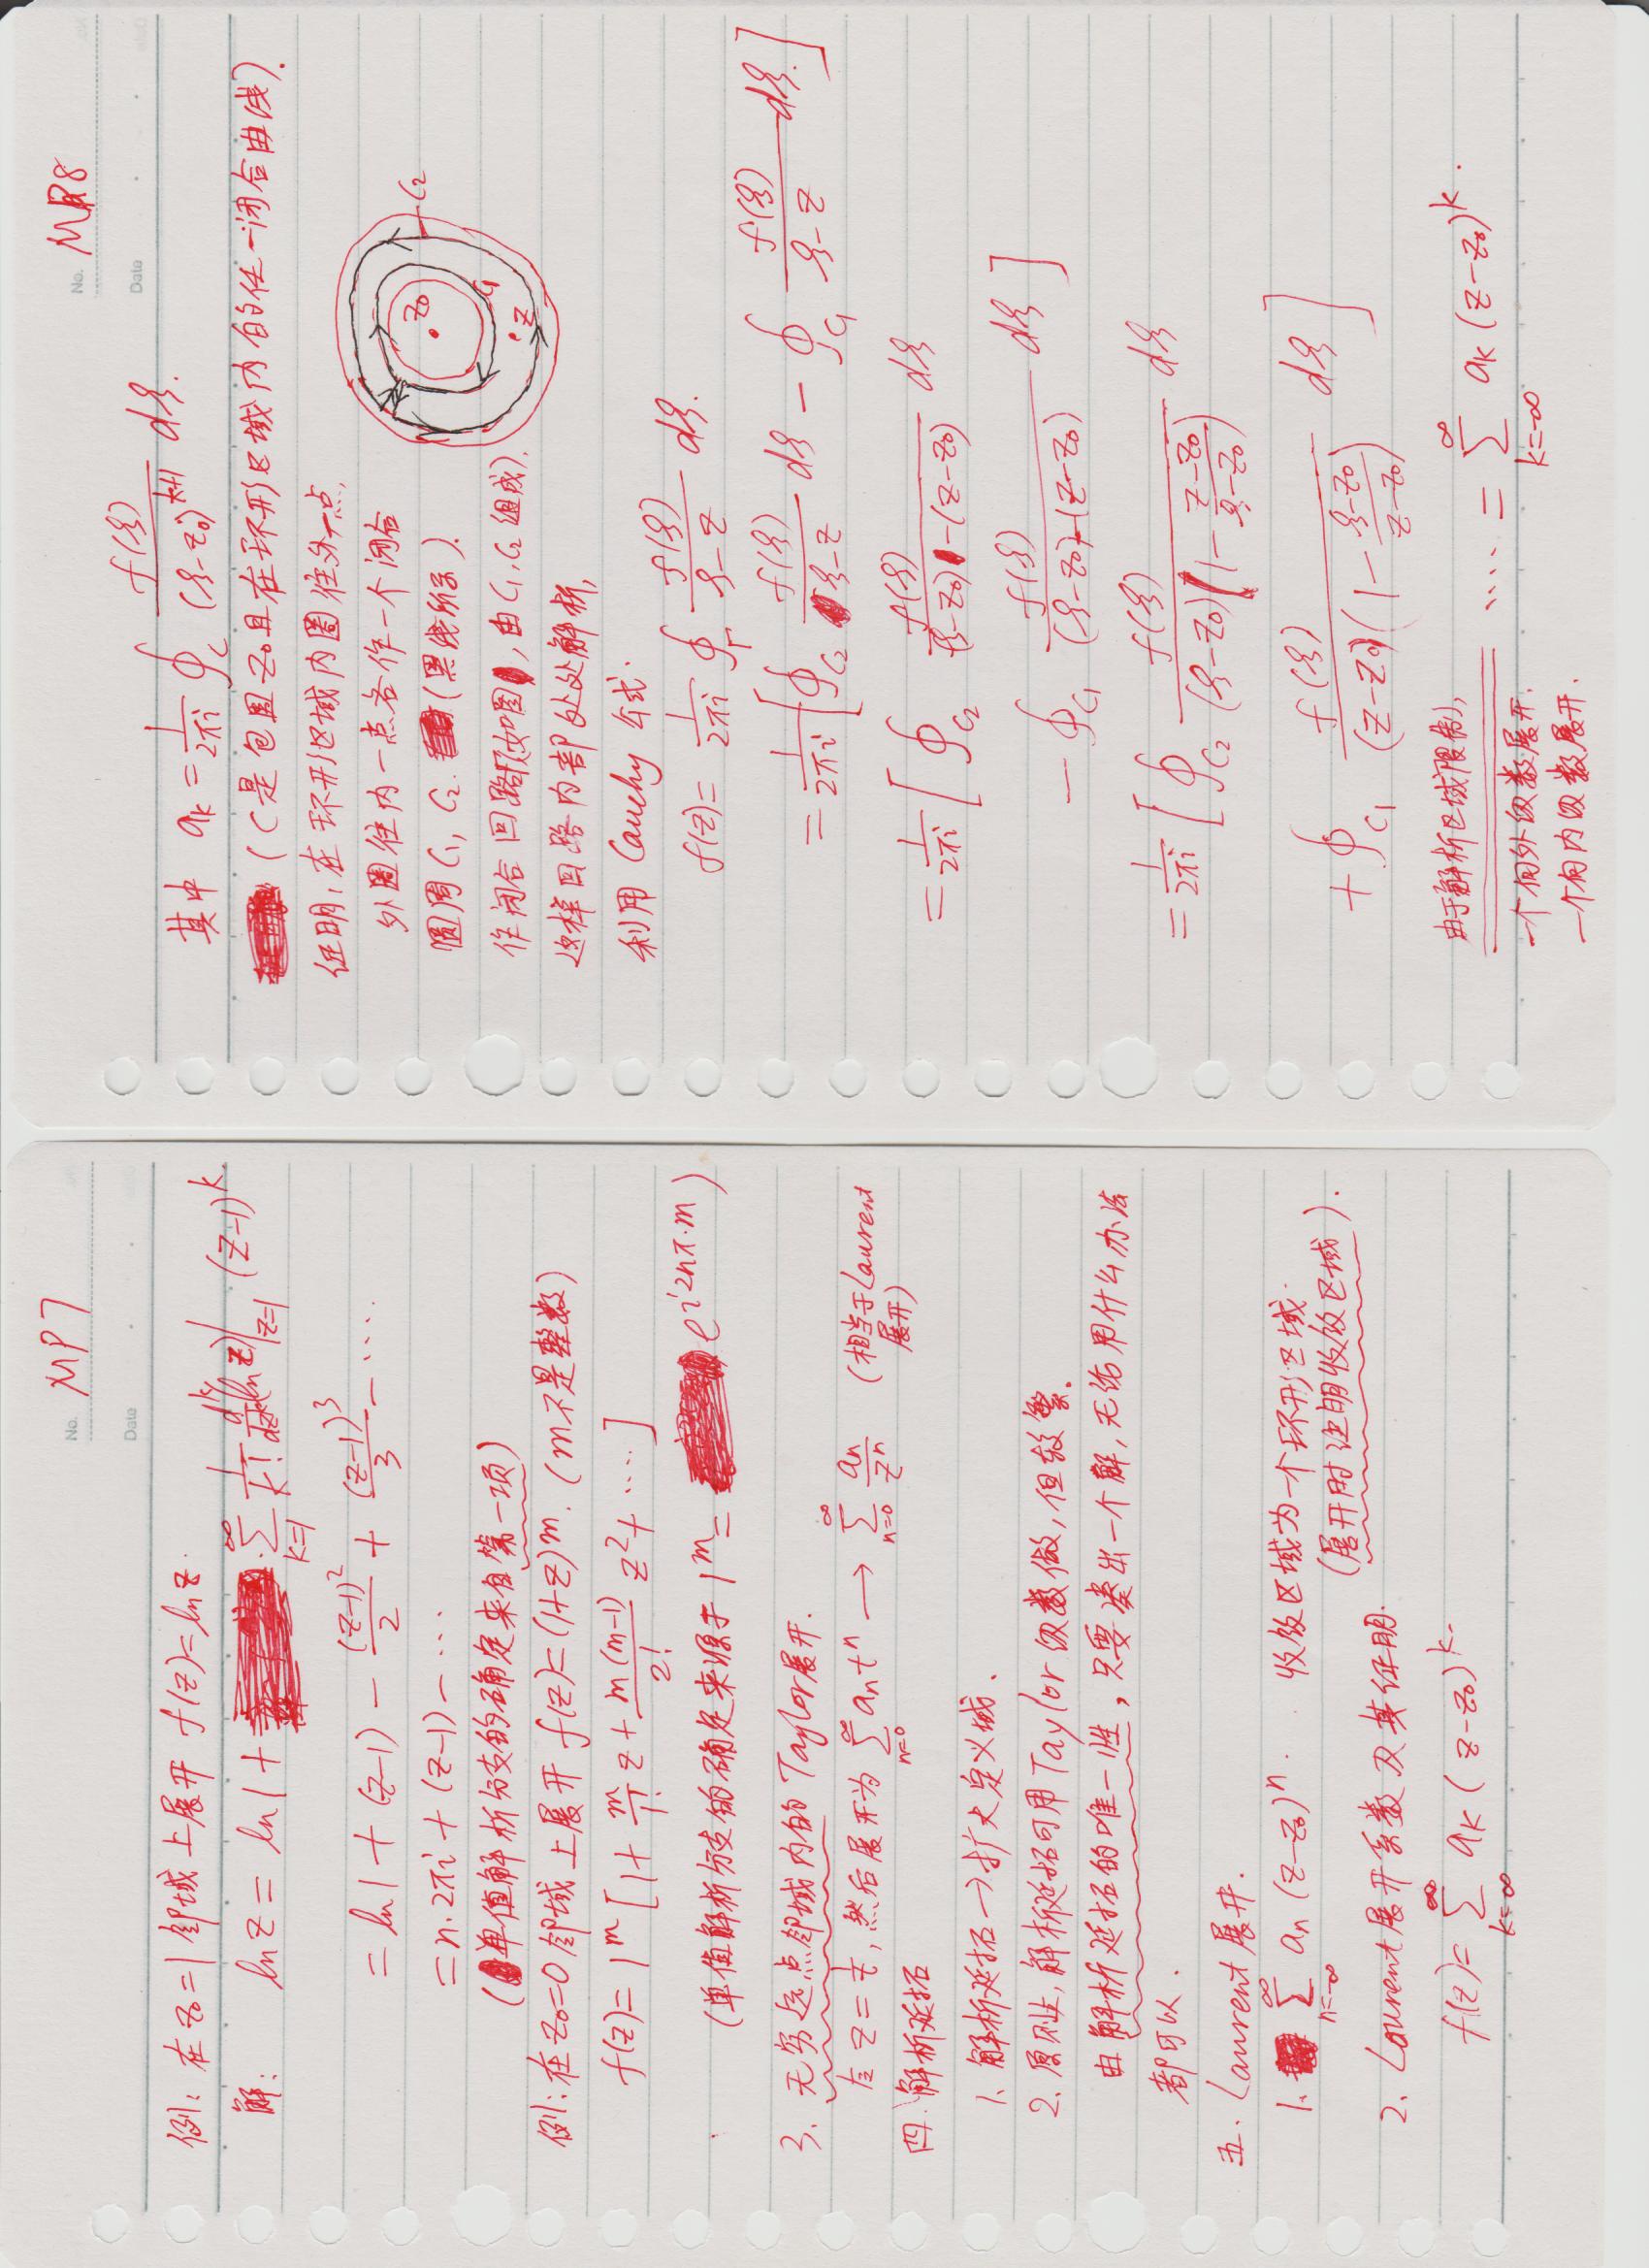 No. MP7
Date
例：在 z₀=1 邻域上展开 f(z)=ln z.
解： ln z = ln 1 + ∑_{k=1}^{∞} \frac{1}{k!} \frac{d^k}{dz^k}(ln z)|_{z=1} (z-1)^k.
= ln 1 + (z-1) - \frac{(z-1)^2}{2} + \frac{(z-1)^3}{3} - ····
= n·2πi + (z-1) - ···
(单值解析分支的确定来自第一项)
例：在 z₀=0 邻域上展开 f(z)=(1+z)^m. (m不是整数)
f(z)= 1^m [1+ \frac{m}{1!} z + \frac{m(m-1)}{2!} z^2 + ····]
(单值解析分支的确定来源于 1^m = e^{i2nπ·m})
3. 无穷远点邻域内的 Taylor展开.
令 z = \frac{1}{t}, 然后展开为 ∑_{n=0}^{∞} a_n t^n → ∑_{n=0}^{∞} \frac{a_n}{z^n} (相当于Laurent
展开)
四. 解析延拓
1. 解析延拓→扩大定义域.
2. 原则上, 解析延拓可用 Taylor 级数做, 但较繁.
由解析延拓的唯一性, 只要凑出一个解, 无论用什么办法
都可以.
五. Laurent 展开.
1. ∑_{n=-∞}^{∞} a_n (z-z₀)^n. 收敛区域为一个环形区域.
(展开时注明收敛区域).
2. Laurent展开系数及其证明.
f(z)= ∑_{k=∞}^{∞} a_k (z-z₀)^k.
No. MP8
Date
其中 a_k = \frac{1}{2πi} ∮_C \frac{f(ζ)}{(ζ-z₀)^{k+1}} dζ.
(C是包围z₀且在环形区域内的任一闭合曲线).
证明, 在环形区域内圈往外一点,
外圈往内一点各作一个闭合
圆周 C₁, C₂. (黑线所示).
z₀
C₂
C₁
z
作闭合回路Γ(如图, 由C₁, C₂组成).
这样回路内部处处解析,
利用 Cauchy 公式.
f(z)= \frac{1}{2πi} ∮_Γ \frac{f(ζ)}{ζ-z} dζ.
= \frac{1}{2πi} [∮_{C₂} \frac{f(ζ)}{ζ-z} dζ - ∮_{C₁} \frac{f(ζ)}{ζ-z} dζ.]
= \frac{1}{2πi} [∮_{C₂} \frac{f(ζ)}{(ζ-z₀)-(z-z₀)} dζ
- ∮_{C₁} \frac{f(ζ)}{(ζ-z₀)-(z-z₀)} dζ]
= \frac{1}{2πi} [∮_{C₂} \frac{f(ζ)}{(ζ-z₀)(1-\frac{z-z₀}{ζ-z₀})} dζ
+ ∮_{C₁} \frac{f(ζ)}{(z-z₀)(1-\frac{ζ-z₀}{z-z₀})} dζ]
由于解析区域限制,
···· = ∑_{k=-∞}^{∞} a_k (z-z₀)^k.
一个向外级数展开.
一个向内级数展开.